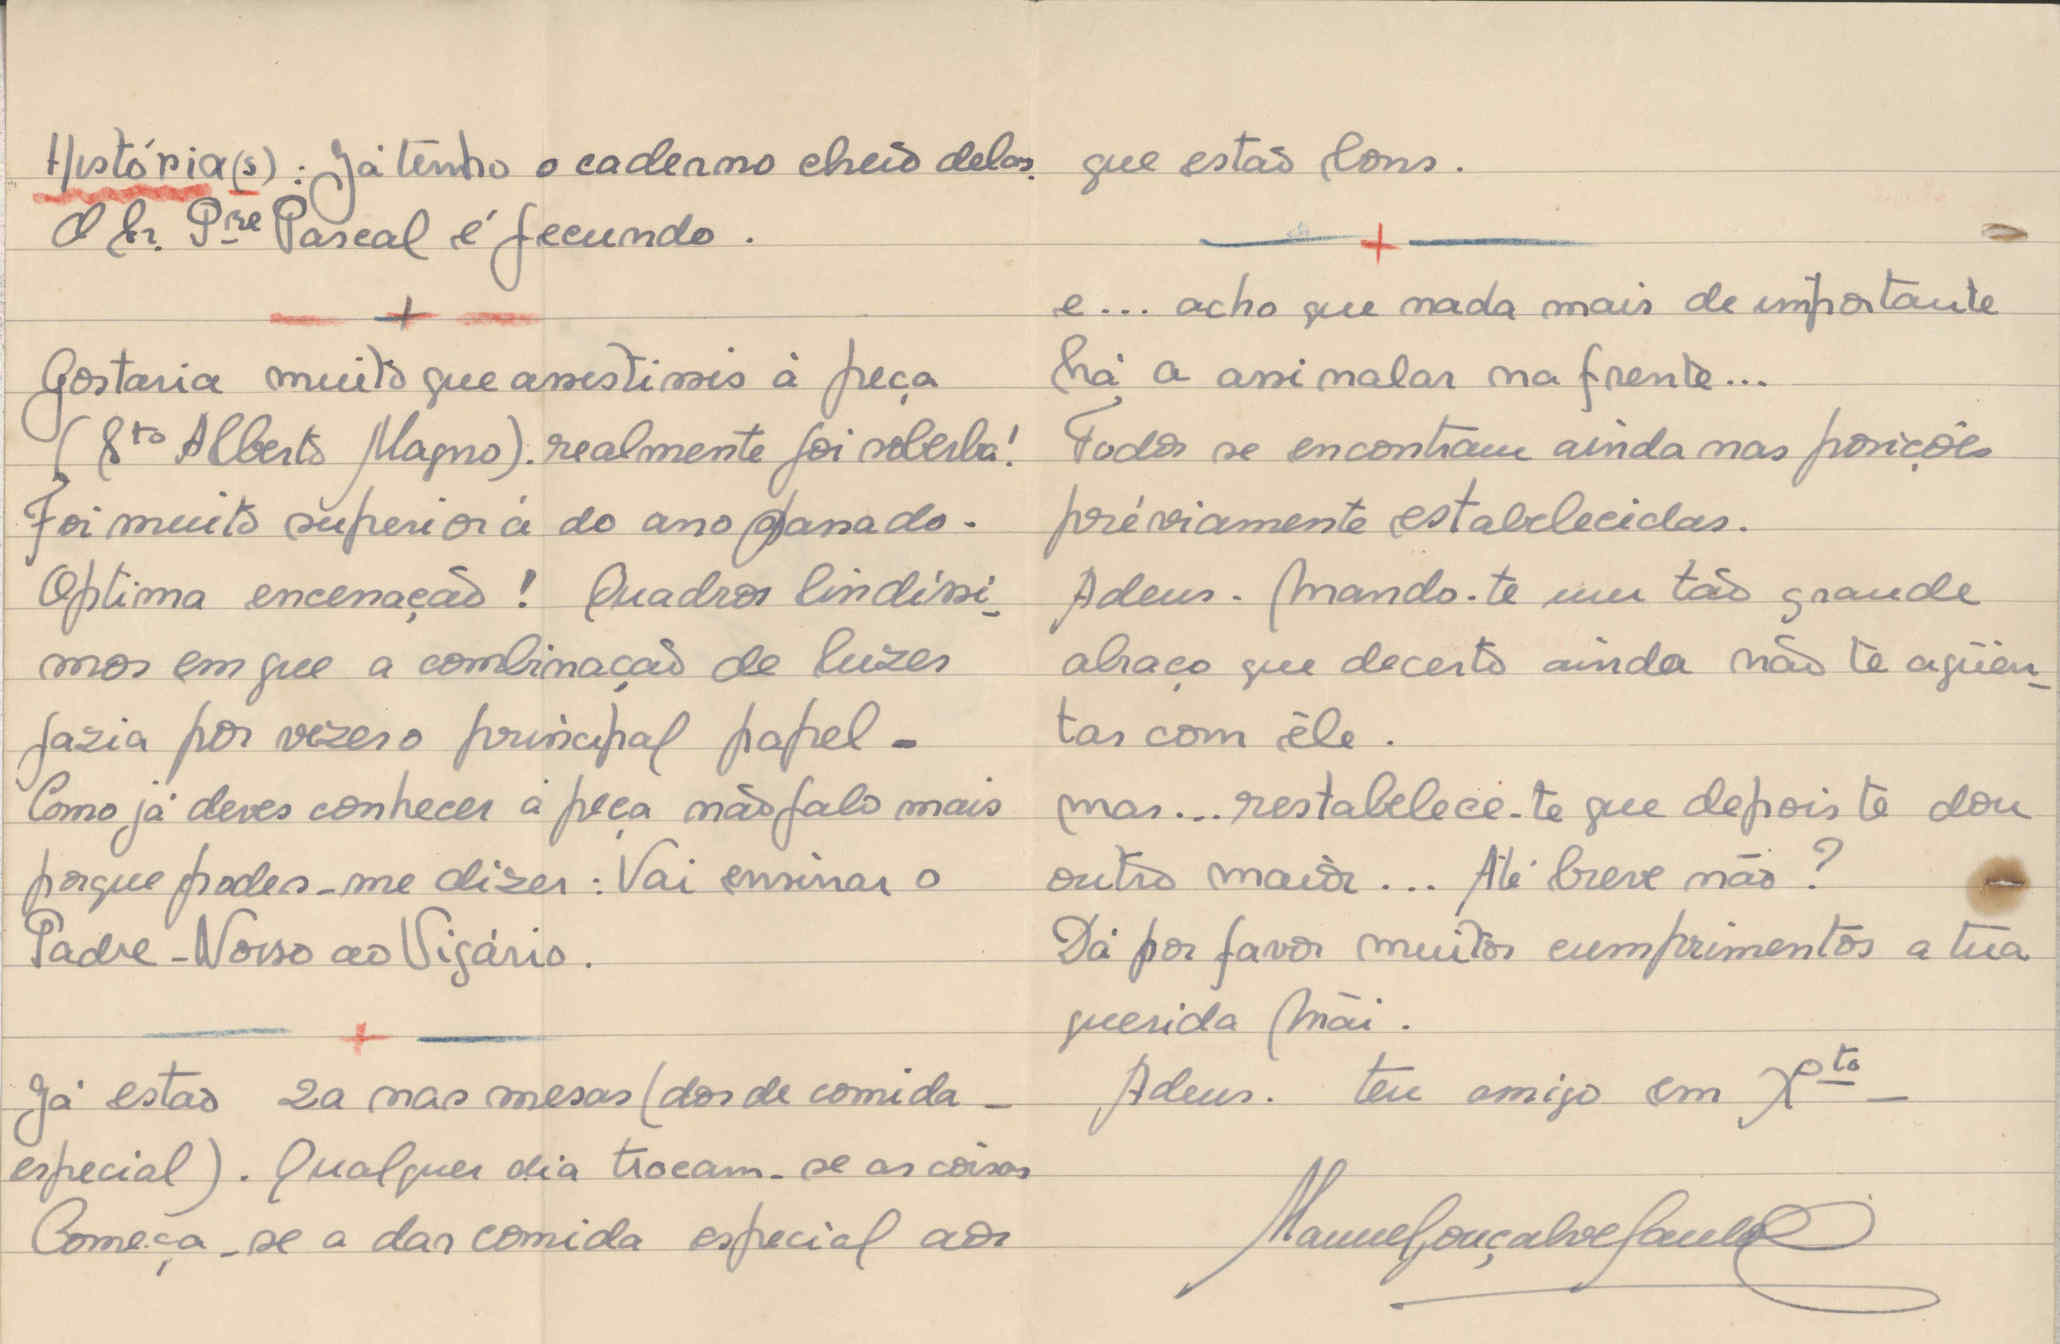 História(s): Já tenho o caderno cheio delas.
O Sr. Pre Pascal é fecundo.
Gostaria muito que assistisses à peça
(Sto Alberto Magno). realmente foi soberba!
Foi muito superior á do ano passado.
Optima encenação! Quadros lindíssi-
mos em que a combinação de luzes
fazia por vezes o principal papel -
Como já deves conhecer a peça não falo mais
porque podes-me dizer: Vai ensinar o
Padre-Nosso ao Vigário.
Já estão 2a nas mesas (dos de comida -
especial). Qualquer dia trocam-se as coisas
Começa-se a dar comida especial aos
que estão bons.
e... acho que nada mais de importante
há a assinalar na frente...
Todos se encontram ainda nas posições
préviamente estabelecidas.
Adeus. Mando-te um tão grande
abraço que decerto ainda não te agüen-
tas com êle.
mas... restabelece-te que depois te dou
outro maior... Até breve não?
Dá por favor muitos cumprimentos a tua
querida Mãi.
Adeus. teu amigo em Xpto -
Manuel Gonçalves